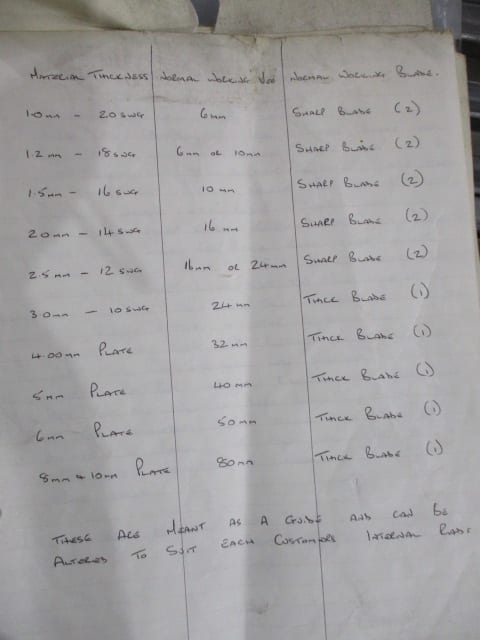 MATERIAL THICKNESS NORMAL WORKING VEE NORMAL WORKING BLADE.
1.0mm - 20 SWG 6mm SHARP BLADE (2)
1.2mm - 18 SWG 6mm or 10mm SHARP BLADE (2)
1.5mm - 16 SWG 10mm SHARP BLADE (2)
2.0mm - 14 SWG 16mm SHARP BLADE (2)
2.5mm - 12 SWG 16mm or 24mm SHARP BLADE (2)
3.0mm - 10 SWG 24mm THICK BLADE (1)
4.00mm PLATE 32mm THICK BLADE (1)
5mm PLATE 40mm THICK BLADE (1)
6mm PLATE 50mm THICK BLADE (1)
8mm & 10mm PLATE 80mm THICK BLADE (1)
THESE ARE MEANT AS A GUIDE AND CAN BE
ALTERED TO SUIT EACH CUSTOMERS INTERNAL RADI